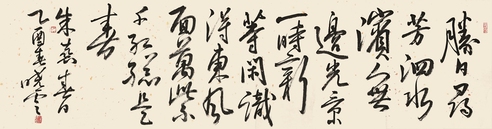 勝日尋
芳泗水
濱無
邊光景
一時新
等閑識
得東風
面萬紫
千紅總是
春
朱熹春日
乙酉春曉雲